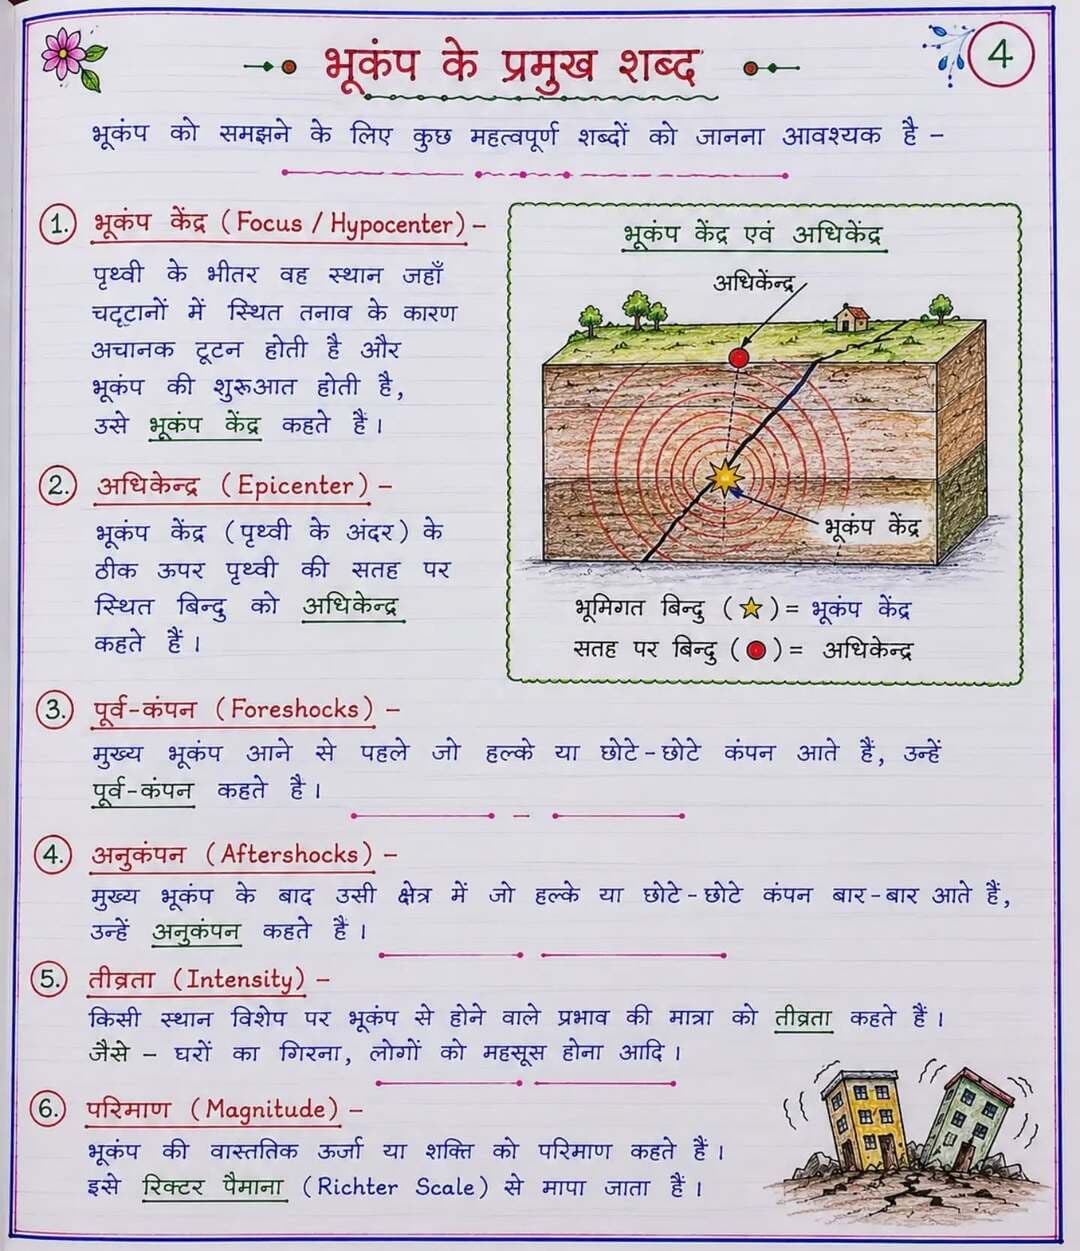 4
भूकंप के प्रमुख शब्द
भूकंप को समझने के लिए कुछ महत्वपूर्ण शब्दों को जानना आवश्यक है –
1. भूकंप केंद्र (Focus / Hypocenter) –
पृथ्वी के भीतर वह स्थान जहाँ
चट्टानों में स्थित तनाव के कारण
अचानक टूटन होती है और
भूकंप की शुरूआत होती है,
उसे भूकंप केंद्र कहते हैं।
2. अधिकेन्द्र (Epicenter) –
भूकंप केंद्र (पृथ्वी के अंदर) के
ठीक ऊपर पृथ्वी की सतह पर
स्थित बिन्दु को अधिकेन्द्र
कहते हैं।
भूकंप केंद्र एवं अधिकेंद्र
अधिकेन्द्र
भूकंप केंद्र
भूमिगत बिन्दु (★) = भूकंप केंद्र
सतह पर बिन्दु (●) = अधिकेन्द्र
3. पूर्व-कंपन (Foreshocks) –
मुख्य भूकंप आने से पहले जो हल्के या छोटे-छोटे कंपन आते हैं, उन्हें
पूर्व-कंपन कहते है।
4. अनुकंपन (Aftershocks) –
मुख्य भूकंप के बाद उसी क्षेत्र में जो हल्के या छोटे-छोटे कंपन बार-बार आते हैं,
उन्हें अनुकंपन कहते हैं।
5. तीव्रता (Intensity) –
किसी स्थान विशेप पर भूकंप से होने वाले प्रभाव की मात्रा को तीव्रता कहते हैं।
जैसे – घरों का गिरना, लोगों को महसूस होना आदि।
6. परिमाण (Magnitude) –
भूकंप की वास्ततिक ऊर्जा या शक्ति को परिमाण कहते हैं।
इसे रिक्टर पैमाना (Richter Scale) से मापा जाता हैं।